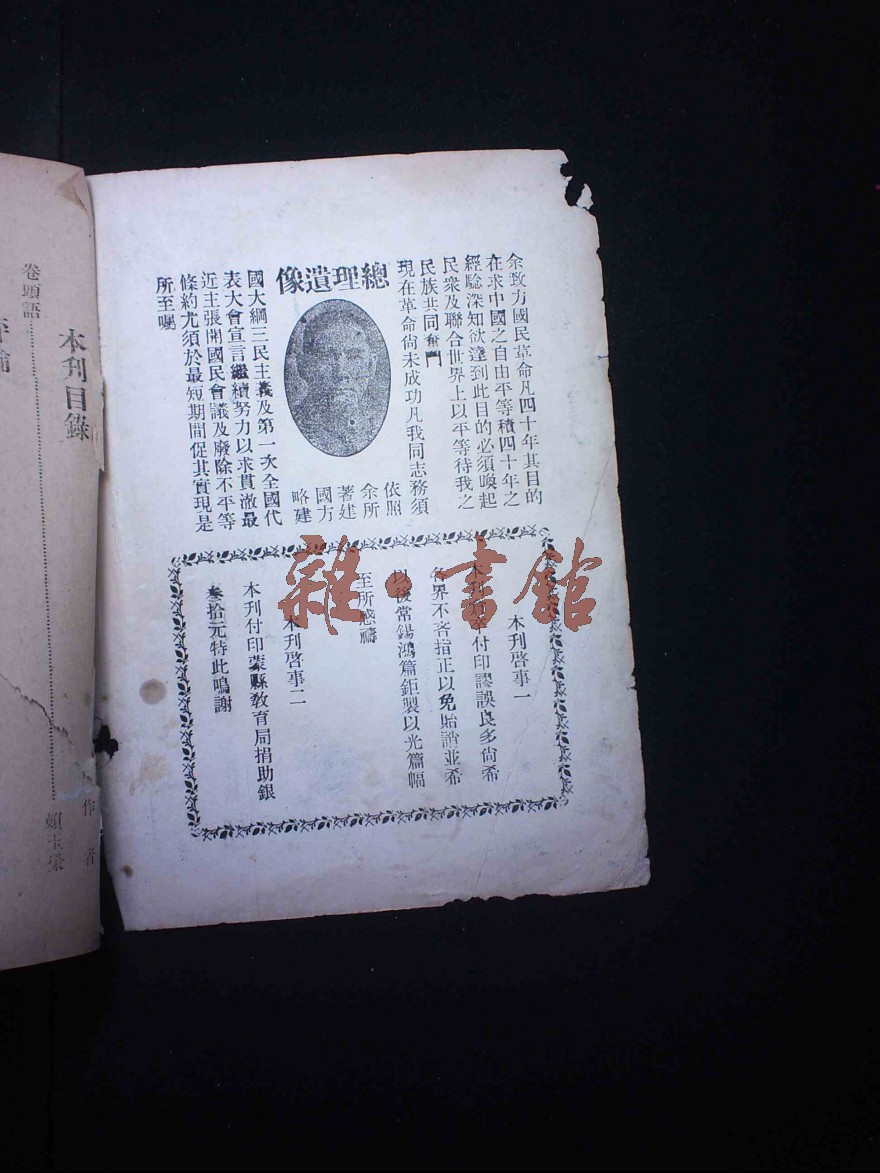 總理遺像
余致力國民革命凡四十年其目的
在求中國之自由平等積四十年之
經驗深知欲達到此目的必須喚起
民衆及聯合世界上以平等待我之
民族共同奮鬥
現在革命尙未成功凡我同志務須
依照
余所
著建
國方
略建
國大綱三民主義及第一次全國代
表大會宣言繼續努力以求貫澈最
近主張開國民會議及廢除不平等
條約尤須於最短期間促其實現是
所至囑
本刊啓事一
本刊付印謬誤良多尙希
各界不吝指正以免貽誚並希
以後常錫鴻篇鉅製以光篇幅
至所感禱
本刊啓事二
本刊付印蒙縣敎育局捐助銀
叁拾元特此鳴謝
雜·書館
本刊目錄
作者
卷頭語
賴玉榮